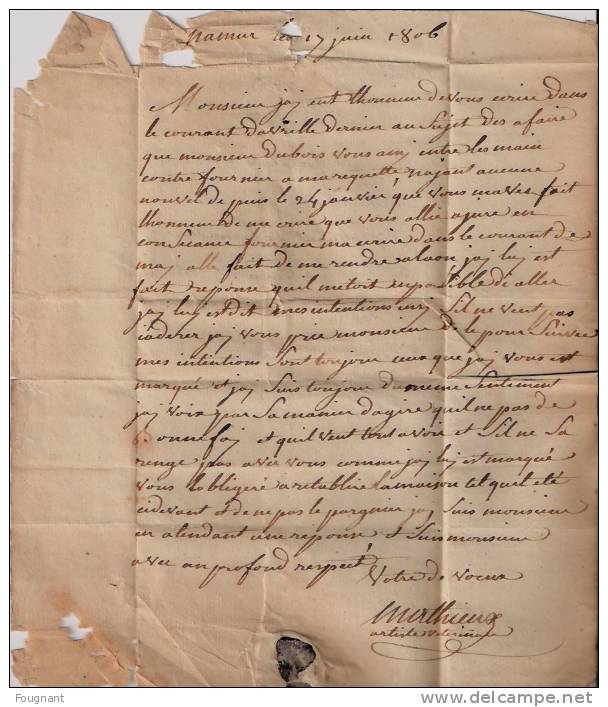 Namur le 17 juin 1806
Monsieur jaj eut lhonneur de vous ecrire dans
le courant davrille dernier au sujet des afaire
que monsieur Dubois vous a mj entre les main
contre fournier a ma requette najant aucune
nouvel de puis le 24 janvier que vous mavez fait
lhonneur de me ecrire que vous allié ajire en
consecance fournier ma ecrire dans le courant de
maj alle fait de me rendre a laon jaj luj est
fait reponse quil metoit imposible di aller
jaj luj est dit mes intentions sil ne veut pas
jaj vous prie monsieur de le pour suivre
mes intentions sont toujour que jaj vous est
marqué et jaj suis toujour du meme sentiment
jaj voir par sa manier dagire quil ne pas de
bonne faj et quil veut tout avoir et sil ne sa
renge pas avec vous comme jaj luj est marqué
vous lobligeré a retablire la maison tel quel été
cidevant et de ne pas le pargnier jaj suis monsieur
en atendant une reponse et suis monsieur
avec un profond respect
Votre de vocua
Merthieux
artiste veterinaire
Fougnant
delcampe.net